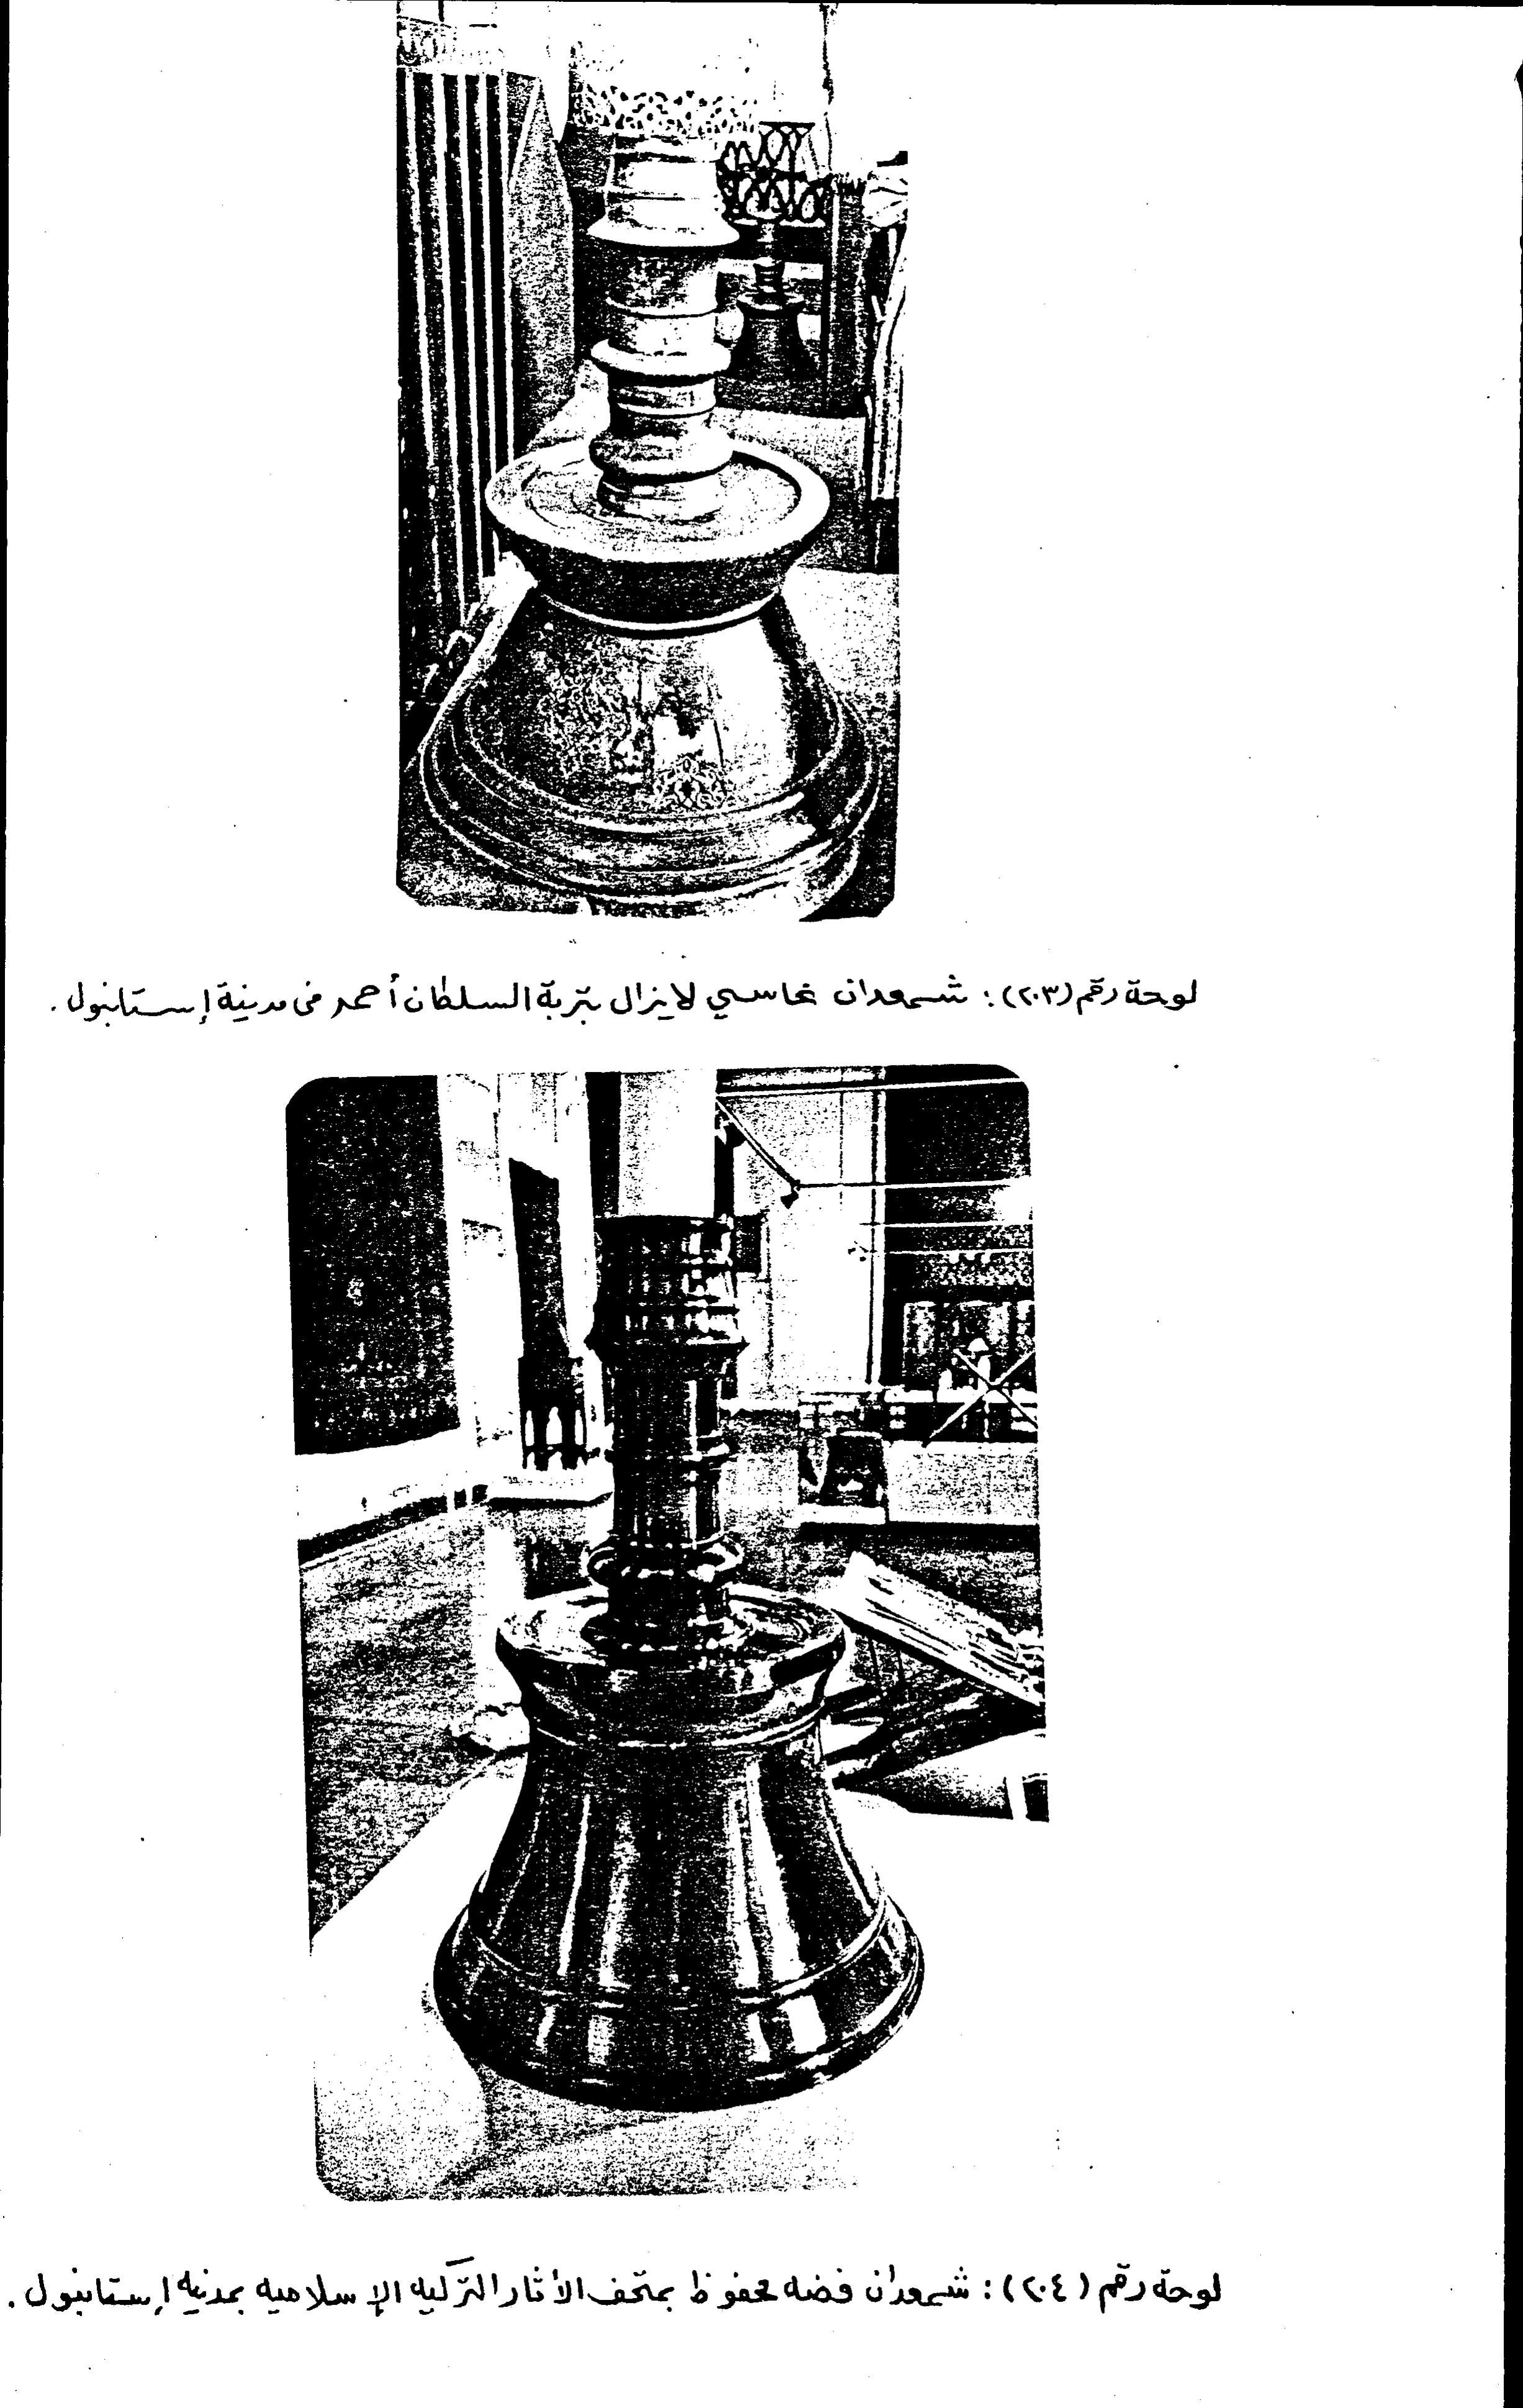 لوحة رقم (٢٠٣): شمعدان نحاسي لايزال بتربة السلطان أحمد فى مدينة إستانبول.
لوحة رقم (٢٠٤): شمعدان فضه محفوظ بمتحف الأثار التركيه الإسلاميه بمدنيه إستانبول.